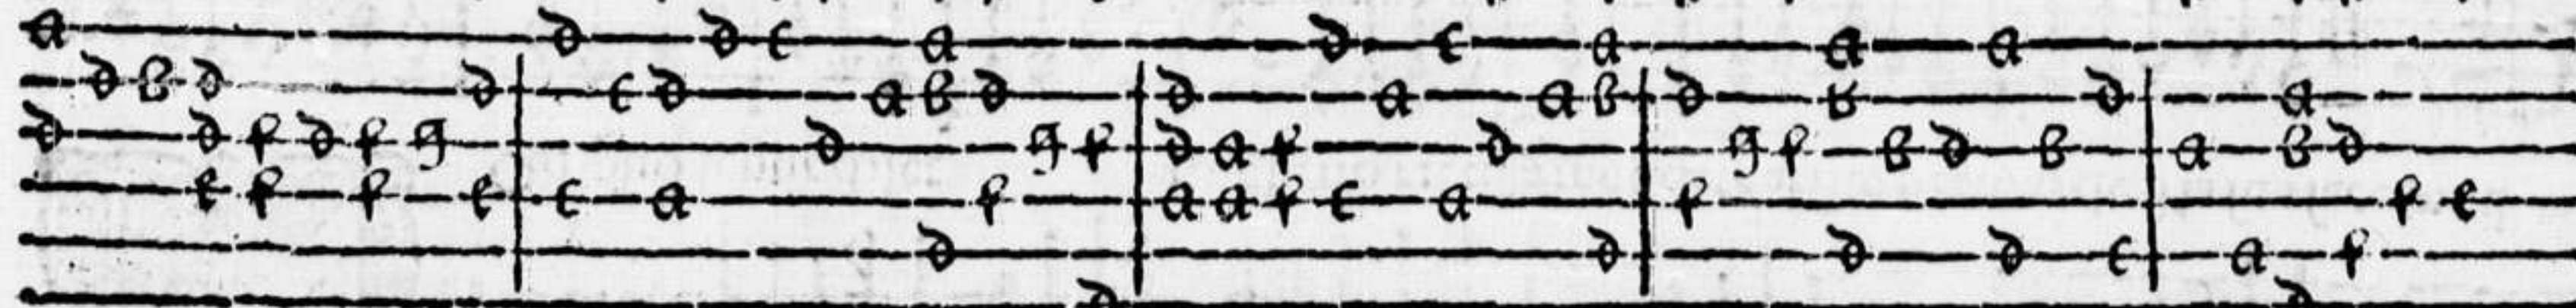 a d d c a d c a a a
d b d d c d a b d d a a b d b d a
d d f d f g d g f d a f d g f b d b a b d
e f f e c a f a a f c a f f e
d d d d c a f
d d